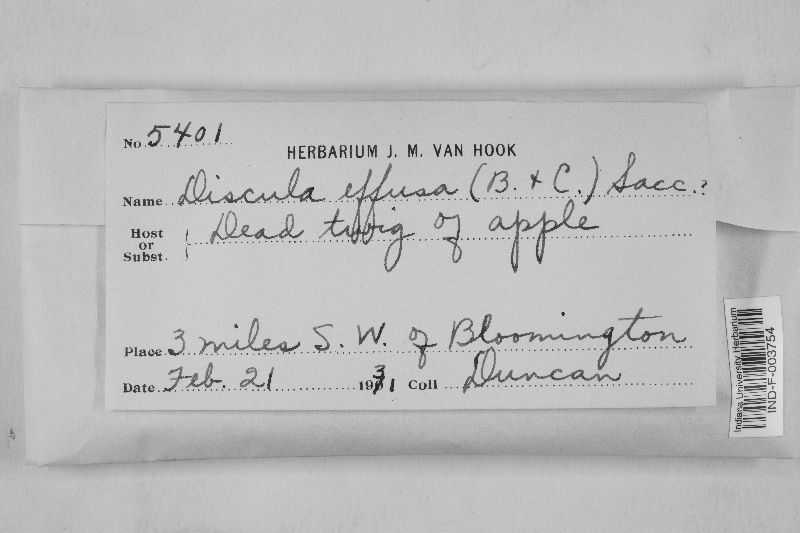 No. 5401
HERBARIUM J. M. VAN HOOK
Name Discula effusa (B. & C.) Sacc.?
Host or Subst. Dead twig of apple
Place 3 miles S. W. of Bloomington
Date Feb. 21 1931 Coll Duncan
Indiana University Herbarium
IND-F-003754